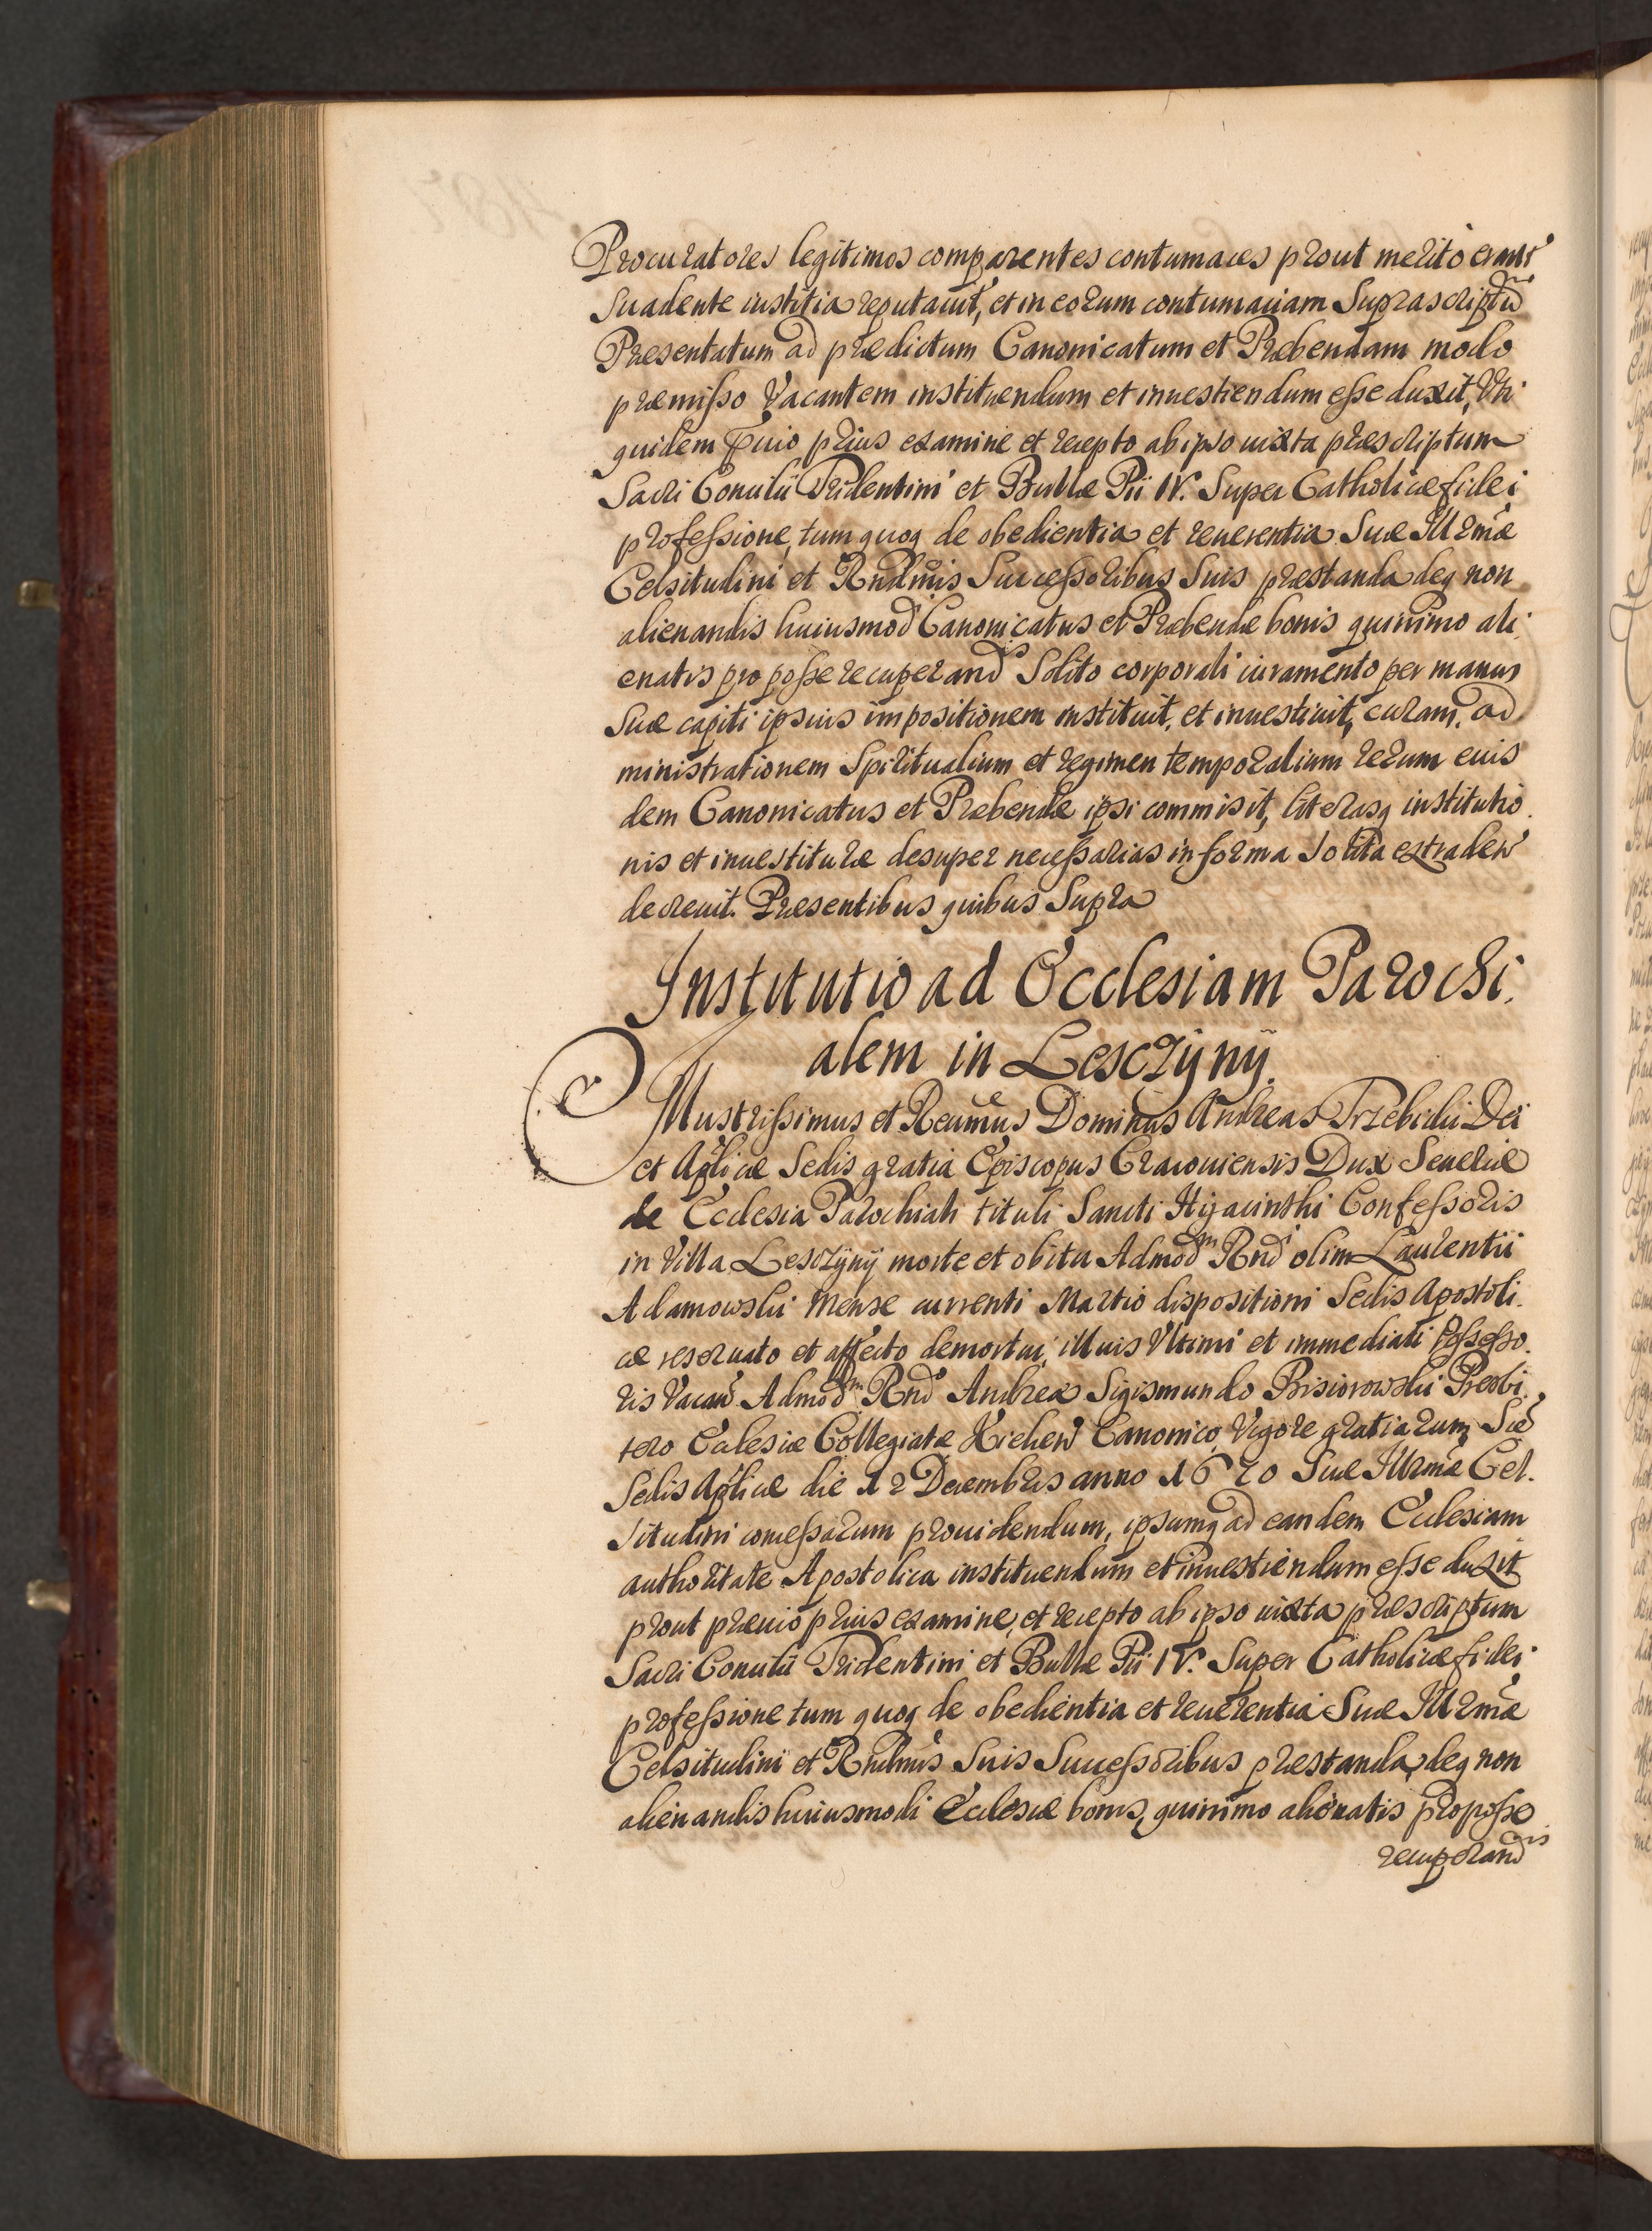 Procuratores legitimos comparentes contumaces prout merito erant
Suadente iustitia reputauit, et in eorum contumaciam Suprascriptũ
Præsentatum ad prædictum Canonicatum et Præbendam modo
præmisso Vacantem instituendum et inuestiendum esse duxit, Vti
quidem prius examine et recepto ab ipso iuxta præscriptum
Sacri Concilii Tridentini et Bullæ Pii IV. Super Catholicæ fidei
professione, tum quoq de obedientia et reuerentia Suæ Illrmæ
Celsitudini et Rndmis Successoribus Suis præstanda deq non
alienandis huiusmod Canonicatus et Præbendæ bonis quinimo ali
enatis pro posse recuperandis Solito corporali iuramento per manus
Suæ capiti ipsius impositionem instituit, et inuestiuit, curam, ad
ministrationem Spiritualium et regimen temporalium rerum eius
dem Canonicatus et Præbendæ ipsi commisit, literasq institutio
nis et inuestituræ desuper necessarias in forma Solita extraden
decreuit. Præsentibus quibus Supra
Institutio ad Ecclesiam Parochi
alem in Lesczÿnÿ.
Illustrissimus et Reumus Dominus Andreas Trzebicki Dei
et Aplicæ Sedis gratia Episcopus Cracouiensis Dux Seueriæ
de Ecclesia Parochiali tituli Sancti Hÿacinthi Confessoris
in Villa Lesczÿnÿ morte et obitu Admodm Rnd olim Laurentii
Adamowski Mense currenti Martio dispositioni Sedis Apostoli
cæ reseruato et affecto demortui, illius Vltimi et immediati possesso
ris Vacan Admodm Rnd Andreæ Sigismundo Prebi
tero Ecclesiæ Collegiatæ Kielcen Canonico Vigore gratiarum Stæ
Sedis Aplicæ die 12 Decembris anno 1670 Suæ Illrmæ Cel
situdini concessarum prouidendum, ipsumq ad eandem Ecclesiam
authoritate Apostolica instituendum et inuestiendum esse duxit
prout præuio prius examine, et recepto ab ipso iuxta præscriptum
Sacri Concilii Tridentini et Bullæ Pii IV. Super Catholicæ fidei
professione tum quoq de obedientia et reuerentia Suæ Illrmæ
Celsitudini et Rndmis Suis Successoribus præstanda, deq non
alienandis huiusmodi Ecclesiæ bonis, quinimo alienatis pro posse
recuperandis